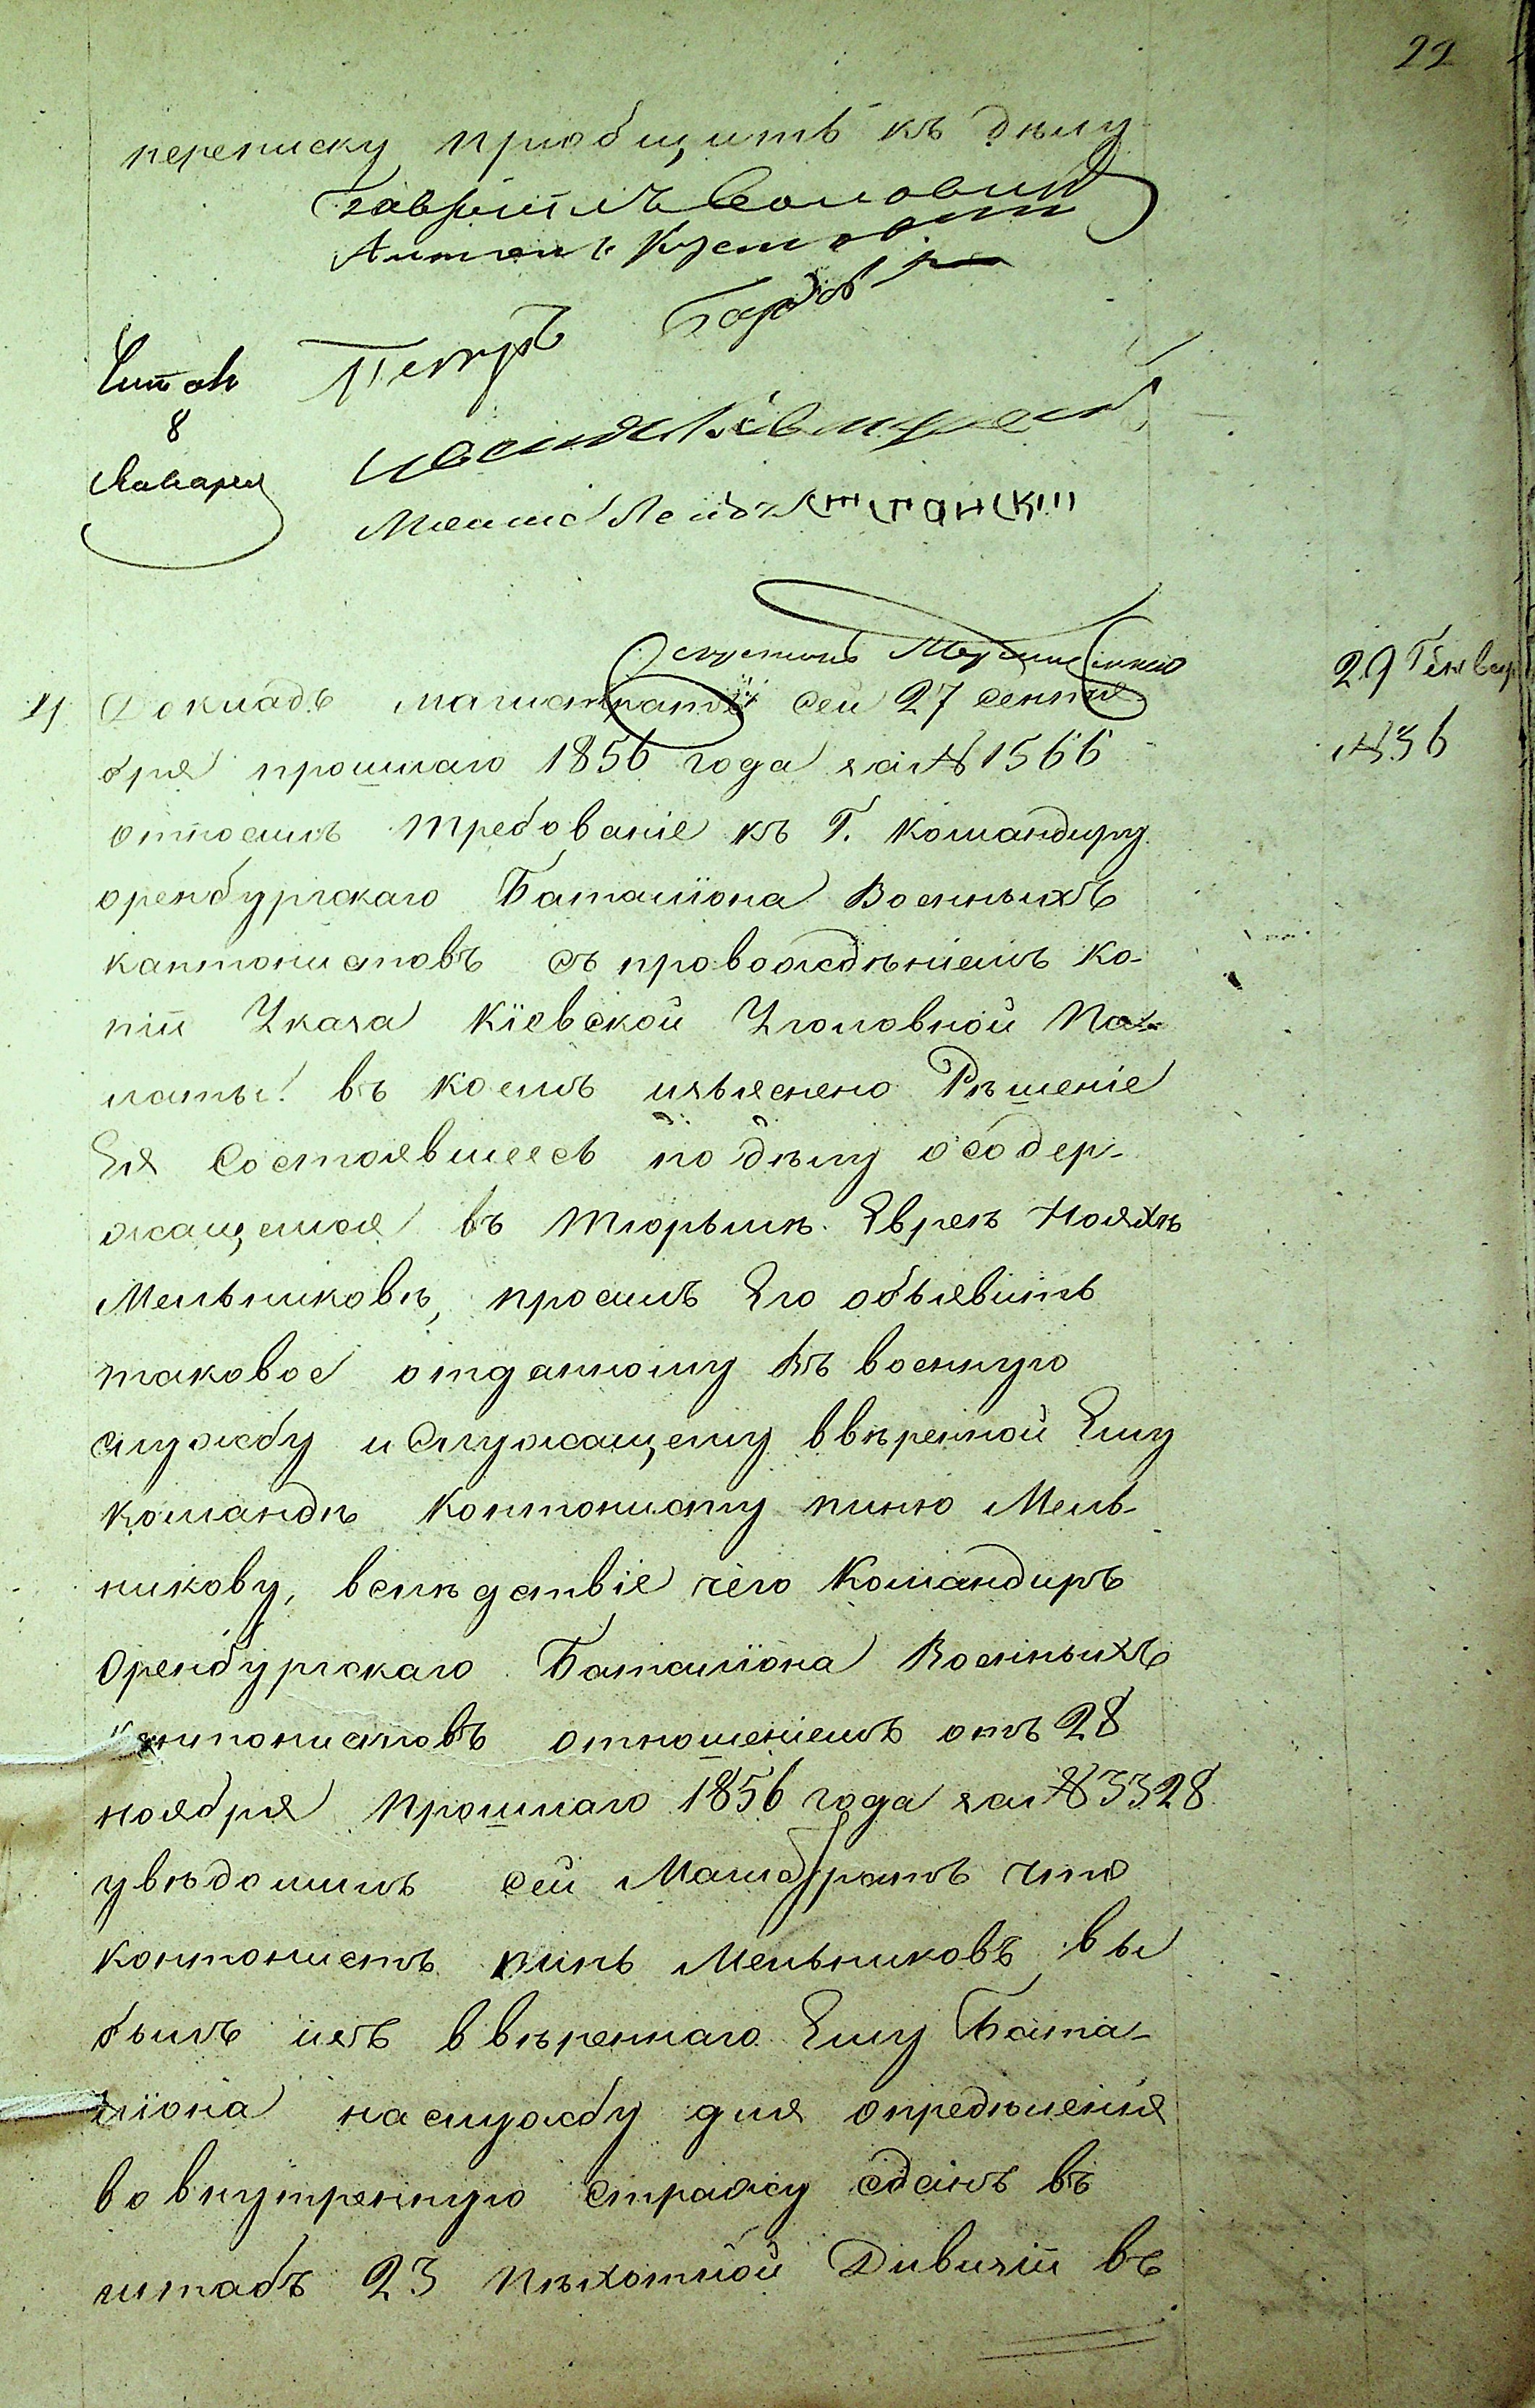 22
переписку приобщить къ дѣлу
Гавріилъ
Антонъ
Петръ
Читалъ
8
Января
Секретарь
29 Генвар
№ 36
11. Докладъ магистратъ сей 27 сентя-
бря прошлаго 1856 года за № 1566
отнесшись требованіе къ Г. Командиру
оренбургскаго Баталіона Военныхъ
кантонистовъ съ провожденіемъ ко-
піи Указа Кіевской Уголовной Па-
латы! въ коемъ изъяснено Рѣшеніе
Ея состоявшееся по дѣлу о содер-
жащемся въ тюрьмѣ Евреѣ
Мельниковѣ, просилъ Его объявить
таковое отданному въ военную
службу и служащему ввѣренной Ему
командѣ контонисту пиню Мель-
никову, вслѣдствіе чего Командиръ
Оренбургскаго Баталіона Военныхъ
кантонистовъ отношеніемъ отъ 28
ноября прошлаго 1856 года за № 3328
увѣдомилъ сей Магистратъ что
контонистъ пинь Мельниковъ вы
былъ изъ ввѣреннаго Ему Бата-
ліона на службу для опредѣленія
во внутренную стражу сданъ въ
штабъ 23 пѣхотной Дивизіи въ